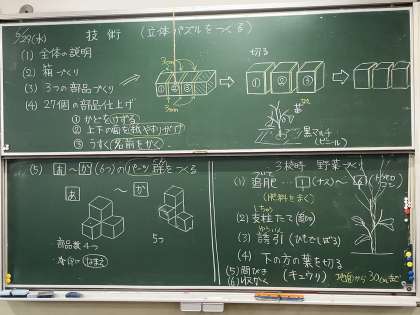 5/29(水) 技術 (立体パズルをつくる)
(1) 全体の説明
(2) 箱づくり
(3) 3つの部品づくり
(4) 27個の部品仕上げ
① かどをけずる
② 上下の面を紙やすりがけ
③ うすく(名前をかく)
3cm
① ② ③
3mm
切る
① ② ③
苗
黒マルチ
(ビニール)
(5) あ〜か(6つ)のパーツ群をつくる
あ 〜 か
部品数4つ
5つ
なまえ
3校時 野菜づくり
(1) 追肥…1(ナス)〜
(肥料をまく)
(2) 支柱たて
(3) 誘引(ひもでしばる)
(4) 下の方の葉を切る
(5) 間びき (キュウリ) 地面から30cmまで
(6) 収かく